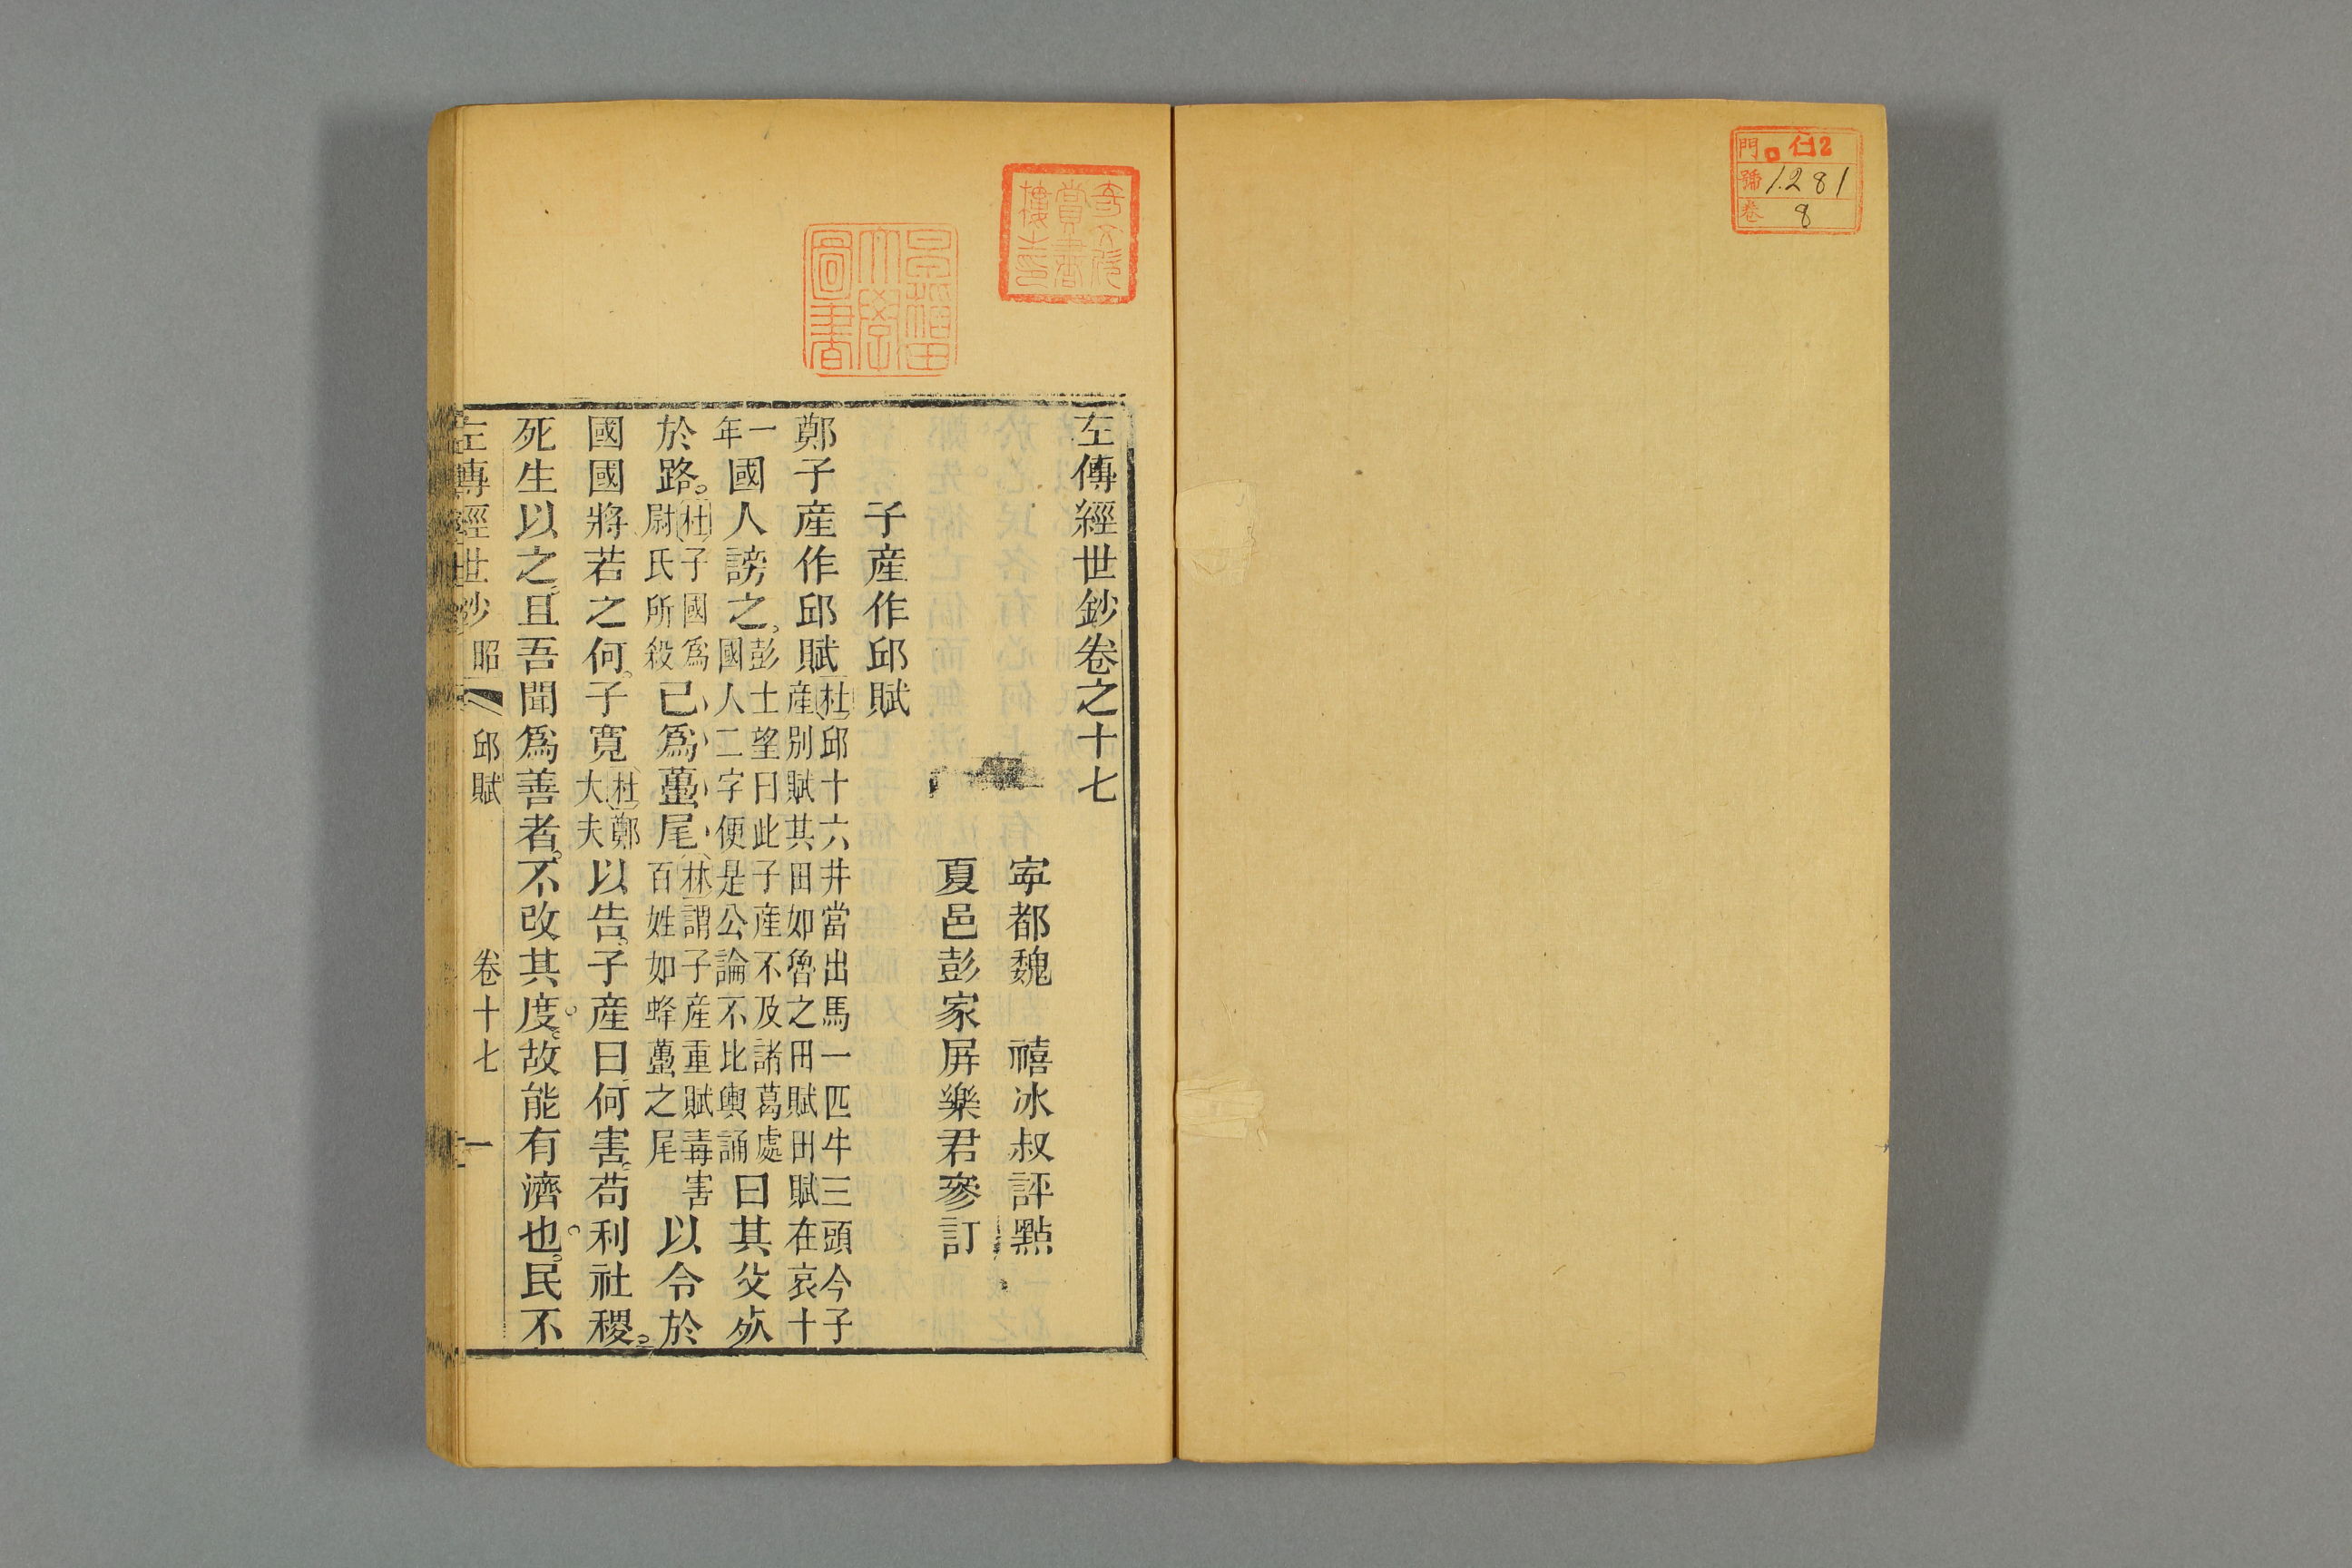 門 ロ12
號 1281
卷 8
早稲田大學圖書
左傳經世鈔卷之十七
寕都魏　禧冰叔評點
夏邑彭家屏樂君參訂
子產作邱賦
鄭子產作邱賦杜邱十六井當出馬一匹牛三頭今子產別賦其田如魯之田賦田賦在哀十
一年國人謗之。彭士望曰此子產不及諸葛處國人二字便是公論不比輿誦曰其父死
於路。杜子國爲尉氏所殺已爲蠆尾林謂子產重賦毒害百姓如蜂蠆之尾以令於
國國將若之何。子寬杜鄭大夫以告。子產曰何害。苟利社稷。
死生以之。且吾聞爲善者。不改其度。故能有濟也。民不
左傳經世鈔　昭　邱賦　卷十七　一